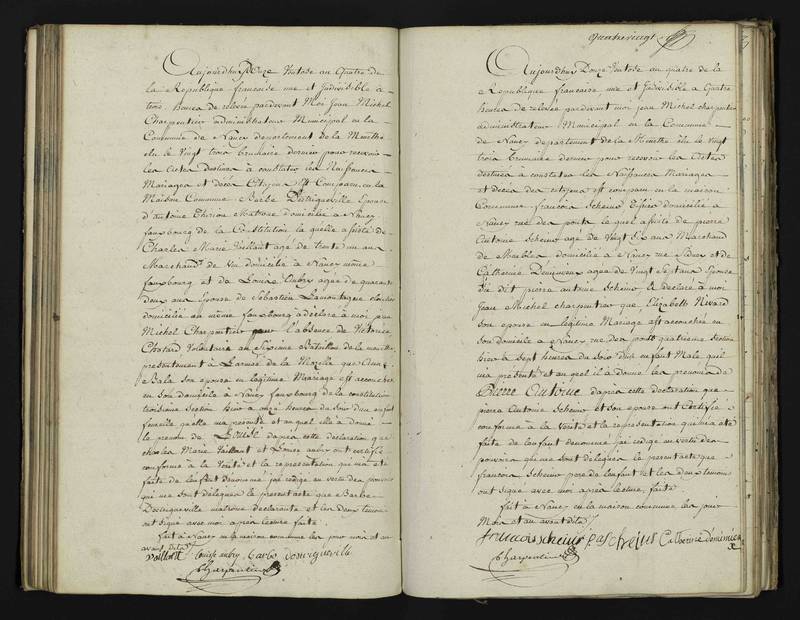 Aujourdhuy Douze Ventose au Quatre de
la Republique francoise une et Indivisible à
trois heures de relevée pardevant Moi Jean Michel
Charpentier administrateur Municipal en la
Commune de Nancy departement de la Meurthe
élu le Vingt trois brumaire dernier pour recevoir
les actes destinés à constater les Naissances
Mariages et décés des Citoyens Est Comparu en la
Maison Commune Barbe Epouse
d'antoine Matrone domiciliée à Nancy
fauxbourg de la Constitution laquelle assistée de
Charles Marie Vaillant agé de trente un ans
Marchand de Vin domicilié à Nancy même
fauxbourg et de Louise Aubry agée de quarante
deux ans Epouse de Sebastien Lamontagne
domiciliée au même fauxbourg à déclaré à moi jean
Michel Charpentier l'absence de
Volontaire au Bataillon de la meurthe
presentement à L'armée de la Mozelle que
son epouse en legitime Mariage est accouchée
en son domicile à Nancy fauxbourg de la constitution
troisieme Section hier à onze heures du soir d'un enfant
femelle quelle ma presenté et auquel elle à donné
le prenom de Louise daprès cette declaration que
charles Marie Vaillant et Louise aubry ont certifié
conforme à la Verité et la representation qui ma eté
faite de lenfant denommé jai redigé en vertu des pouvoirs
qui me sont delegués le present acte que Barbe
matrone declarante et les deux temoins
ont signé avec moi après lecture faite
fait à Nancy en la maison commune les jour mois et an
avant dits
vaillant Louise aubry barbe
Charpentier
quatre vingt
Aujourdhuy Douze Ventose au quatre de la
Republique francoise une et Indivisible à Quatre
heures de relevée pardevant moi jean Michel charpentier
administrateur Municipal en la Commune
de Nancy departement de la Meurthe élu le vingt
trois brumaire dernier pour recevoir les Actes
destinés à constater les Naissances Mariages
et decés des citoyens est comparu en la maison
Commune francois Scheine domicilié à
Nancy rue des ponts lequel assisté de pierre
Antoine Scheine agé de Vingt Six ans Marchand
de Meubles domicilié à Nancy rue et de
Catherine agée de Vingt Sept ans Epouse
du dit pierre antoine Scheine à declaré à moi
Jean Michel charpentier que Elizabeth Nivard
son epouse en legitime Mariage est accouchée en
son domicile à Nancy rue des ponts quatrieme Section
hier à sept heures du Soir d'un enfant Male quil
ma presenté et auquel il à donné les prenoms de
Pierre Antoine daprès cette declaration que
pierre Antoine Scheine et son epouse ont Certifié
conforme à la Verité et la representation qui ma eté
faite de lenfant denommé jai redigé en vertu des
pouvoirs qui me sont delegués le present acte que
francois Scheine pere de lenfant et les deux temoins
ont signé avec moi après lecture faite
fait à Nancy en la maison commune les jour
Mois et an avant dits
francois Catherine
Charpentier